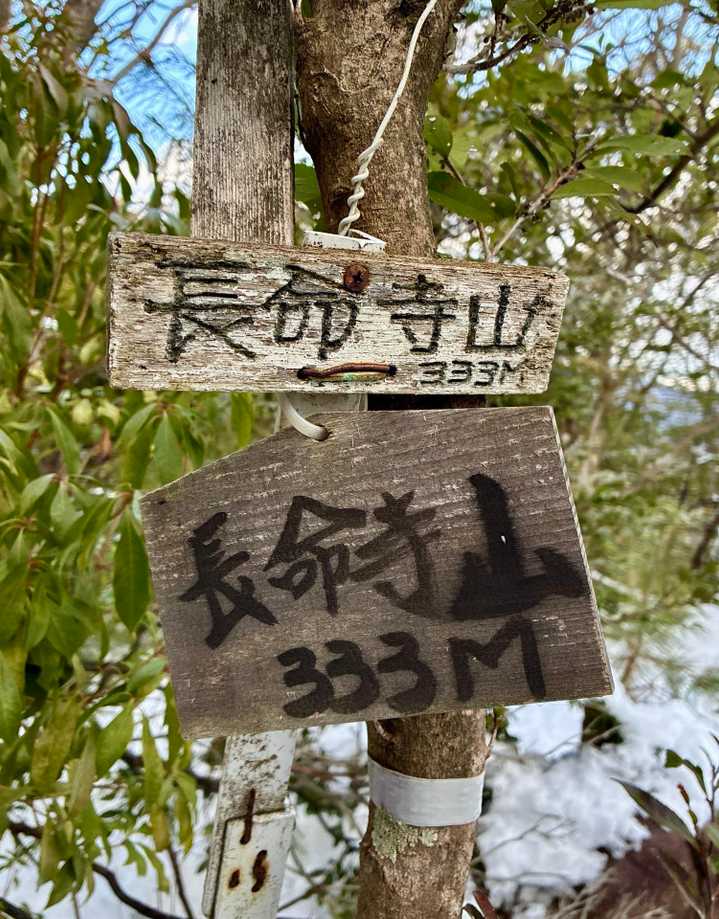 長命寺山
333M
長命寺山
333M